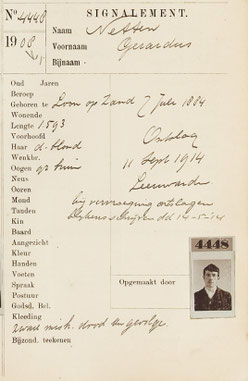 Nº 4448 SIGNALEMENT.
1908 Naam Netten
Voornaam Gerardus
Bijnaam
Oud Jaren
Beroep
Geboren te Loon op Zand 7 Juli 1884
Wonende
Lengte 1593
Voorhoofd Ontslag
Haar d. blond
Wenkbr. 11 Sept 1914
Oogen gr. bruin
Neus Leeuwarden
Ooren
Mond bij vervroeging ontslagen
Tanden dd 14-5-14
Kin
Baard
Aangezicht
Kleur 4448
Handen
Voeten
Spraak Opgemaakt door
Postuur
Godsd. Bel.
Kleeding
zware mish. dood ten gevolge
Bijzond. teekenen